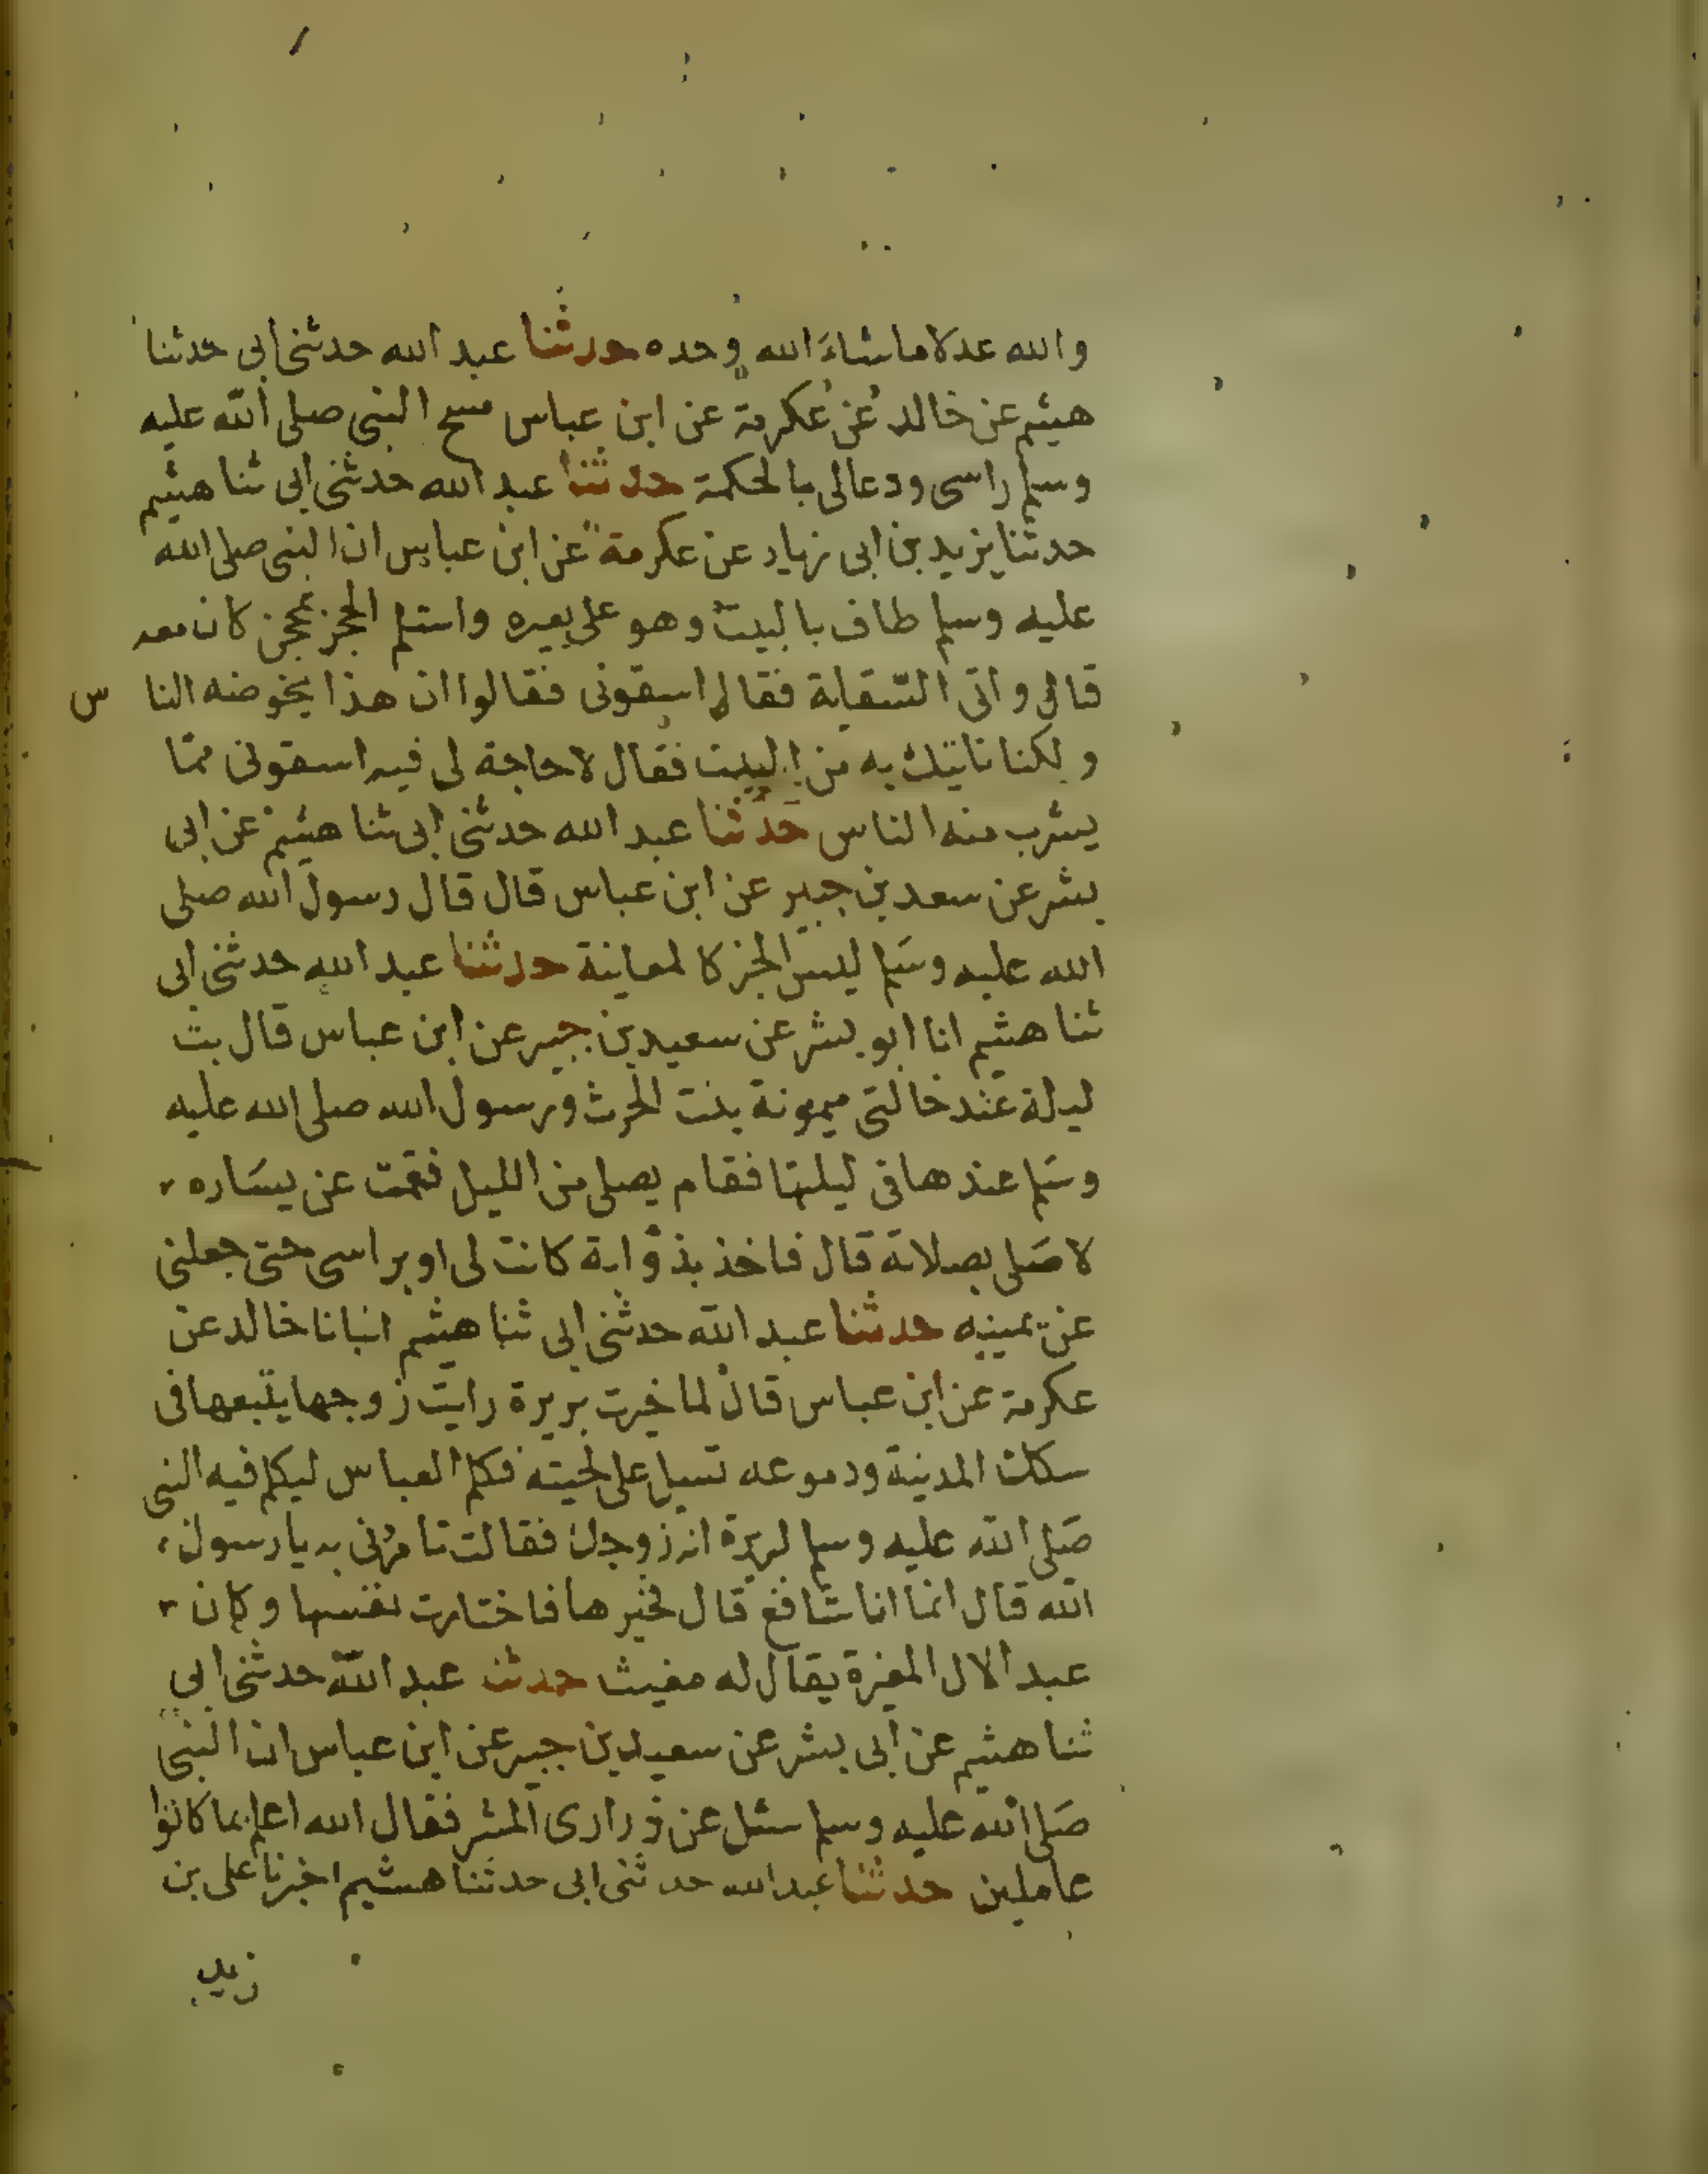 والله عدلا ماشاء الله وحده حدثنا عبد الله حدثنى ابى حدثنا
هيثم عن خالد عن عكرمة عن ابن عباس مسح النبى صلى الله عليه
وسلم راسى ودعالى بالحكمة حدثنا عبد الله حدثنى ابى ثنا هيثم
حدثنا يزيد بن ابى زياد عن عكرمة عن ابن عباس ان النبى صلى الله
عليه وسلم طاف بالبيت وهو على بعيره واستلم الحجر بمحجن كان معه
قال واتى السقاية فقال اسقونى فقالوا ان هذا يخوضه الناس
ولكنا ناتيك به من البيت فقال لا حاجة لى فيه اسقونى مما
يشرب منه الناس حدثنا عبد الله حدثنى ابى ثنا هيثم عن ابى
بشر عن سعد بن جبير عن ابن عباس قال قال رسول الله صلى
الله عليه وسلم ليس الخبر كالمعاينة حدثنا عبد الله حدثنى ابى
ثنا هشيم انا ابو بشر عن سعيد بن جبير عن ابن عباس قال بت
ليلة عند خالتى ميمونة بنت الحرث ورسول الله صلى الله عليه
وسلم عندها فى ليلتها فقام يصلى من الليل فقمت عن يساره
لاصلى بصلاته قال فاخذ بذؤابة كانت لى او براسى حتى جعلنى
عن يمينه حدثنا عبد الله حدثنى ابى ثنا هشيم انبانا خالد عن
عكرمة عن ابن عباس قال لما خيرت بريرة رايت زوجها يتبعها فى
سكك المدينة ودموعه تسيل على لحيته فكلم العباس ليكلم فيه النبى
صلى الله عليه وسلم لبريرة انه زوجك فقالت تامرنى به يا رسول
الله قال انما انا شافع قال فخيرها فاختارت نفسها وكان
عبدا لال المغيرة يقال له مغيث حدثنا عبد الله حدثنى ابى
ثنا هشيم عن ابى بشر عن سعيد بن جبير عن ابن عباس ان النبى
صلى الله عليه وسلم سئل عن ذرارى المشر فقال الله اعلم بما كانوا
عاملين حدثنا عبد الله حدثنى ابى حدثنا هشيم اخبرنا على بن
زيد